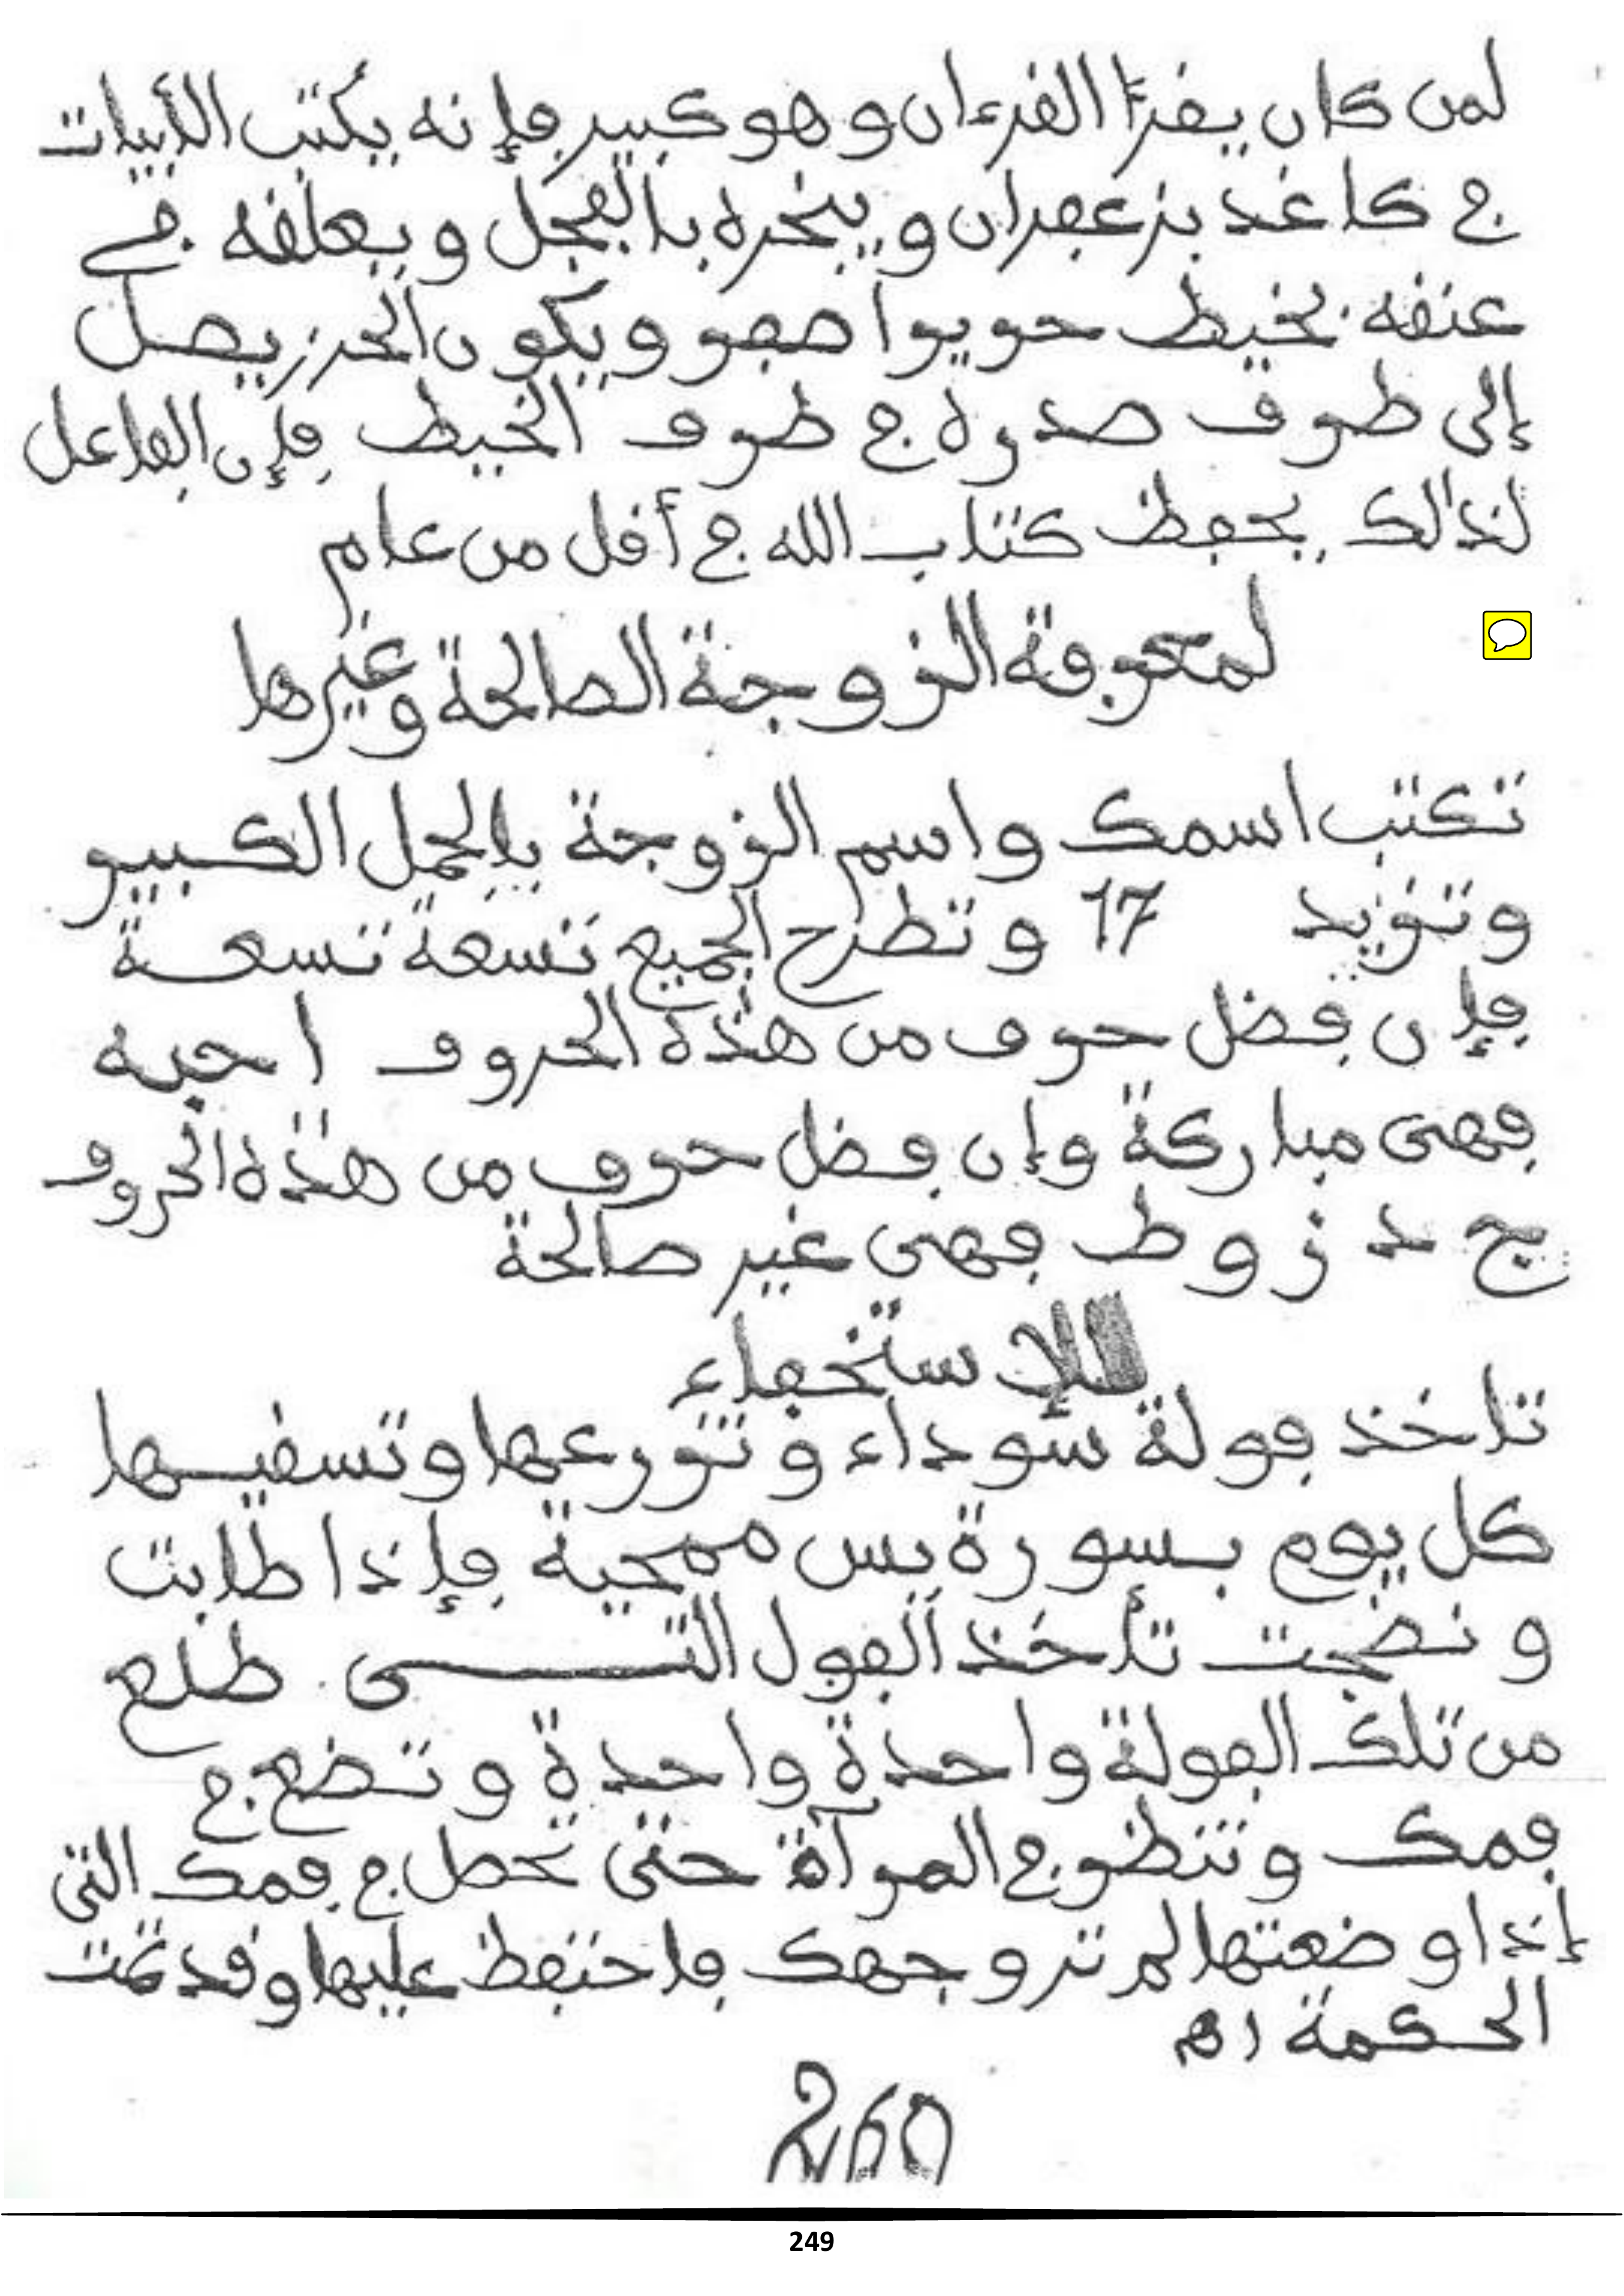 لمن كان يقرأ القرءان وهو كبير فإنه يكتب الأبيات
في كاغد بزعفران ويبخره بالفجل ويعلقه في
عنقه بخيط حرير أصفر ويكون الحرز يصل
إلى طرف صدره في طرف الخيط فإن الفاعل
لذلك يحفظ كتاب الله في أقل من عام
لمعرفة الزوجة الصالحة وغيرها
تكتب اسمك واسم الزوجة بالجمل الكبير
وتزيد 17 وتطرح الجميع تسعة تسعة
فإن فضل حرف من هذه الحروف ا ح به
فهى مباركة وإن فضل حرف من هذه الحروف
ج د ز و ط فهى غير صالحة
للإستخفاء
تاخذ فولة سوداء وتزرعها وتسقيها
كل يوم بسورة يس ممحية فإذا طابت
ونضجت تأخذ الفول التى طلع
من تلك الفولة واحدة واحدة وتضع في
فمك وتنظر في المرآة حتى تحصل في فمك التى
إذا وضعتها لم تر وجهك فاحتفظ عليها وقد تمت
الحكمة اه
260
249